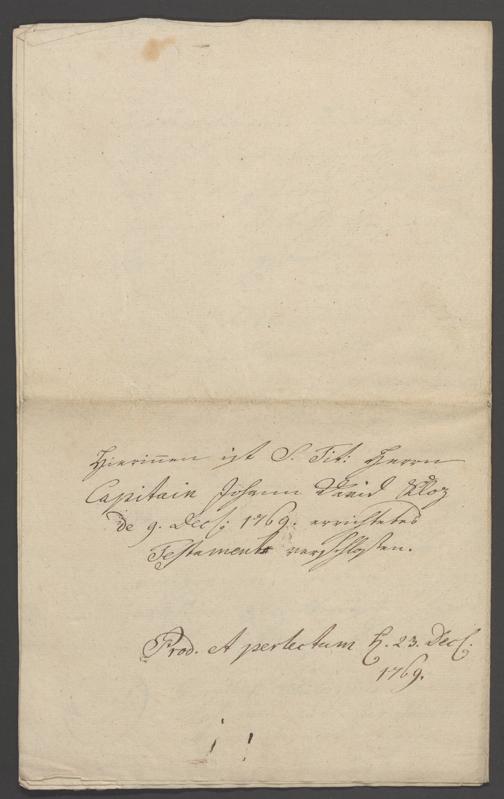 Hierinnen ist S. Tit: Herrn
Capitain Johann David Kloz
de 9. Decb: 1769. errichtetes
Testament verschlossen.
Prod. et perlectum H. 23. Decb.
1769.